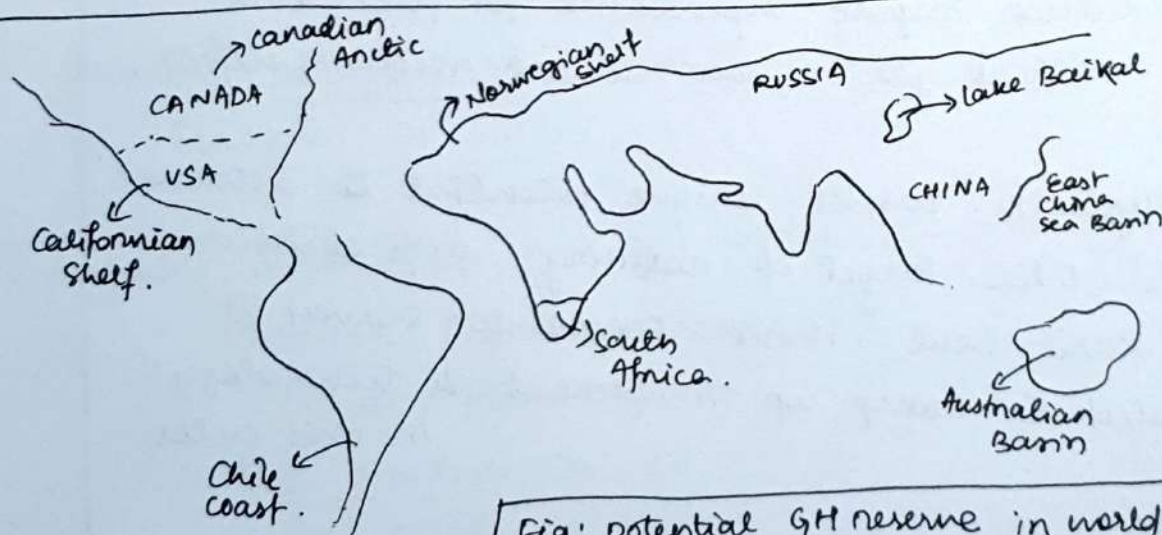 Canadian
Arctic
CANADA
USA
Californian
Shelf.
Norwegian
Shelf
RUSSIA
Lake Baikal
CHINA
East
China
Sea Basin
South
Africa.
Australian
Basin
Chile
coast.
Fig: potential GH reserve in world